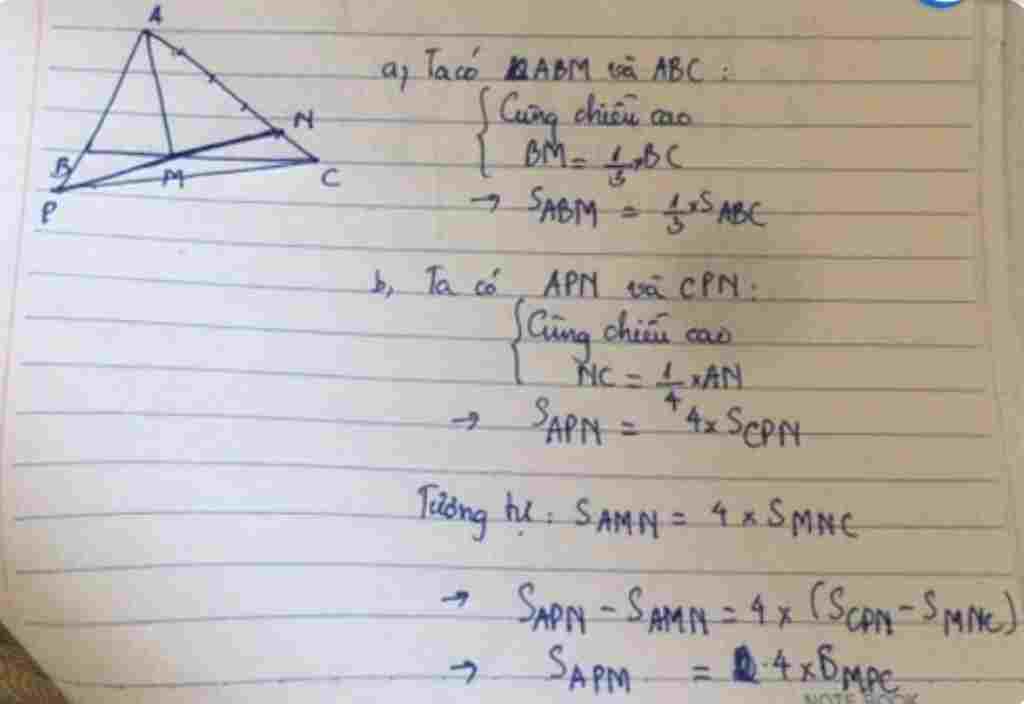 A
N
B
M
C
P
a, Ta có ABM và ABC :
Cùng chiều cao
BM = 1/3 × BC
→ S_ABM = 1/3 × S_ABC
b, Ta có APN và CPN :
Cùng chiều cao
NC = 1/4 × AN
→ S_APN = 4 × S_CPN
Tương tự : S_AMN = 4 × S_MNC
→ S_APN - S_AMN = 4 × (S_CPN - S_MNC)
→ S_APM = 4 × S_MPC
NOTE BOOK